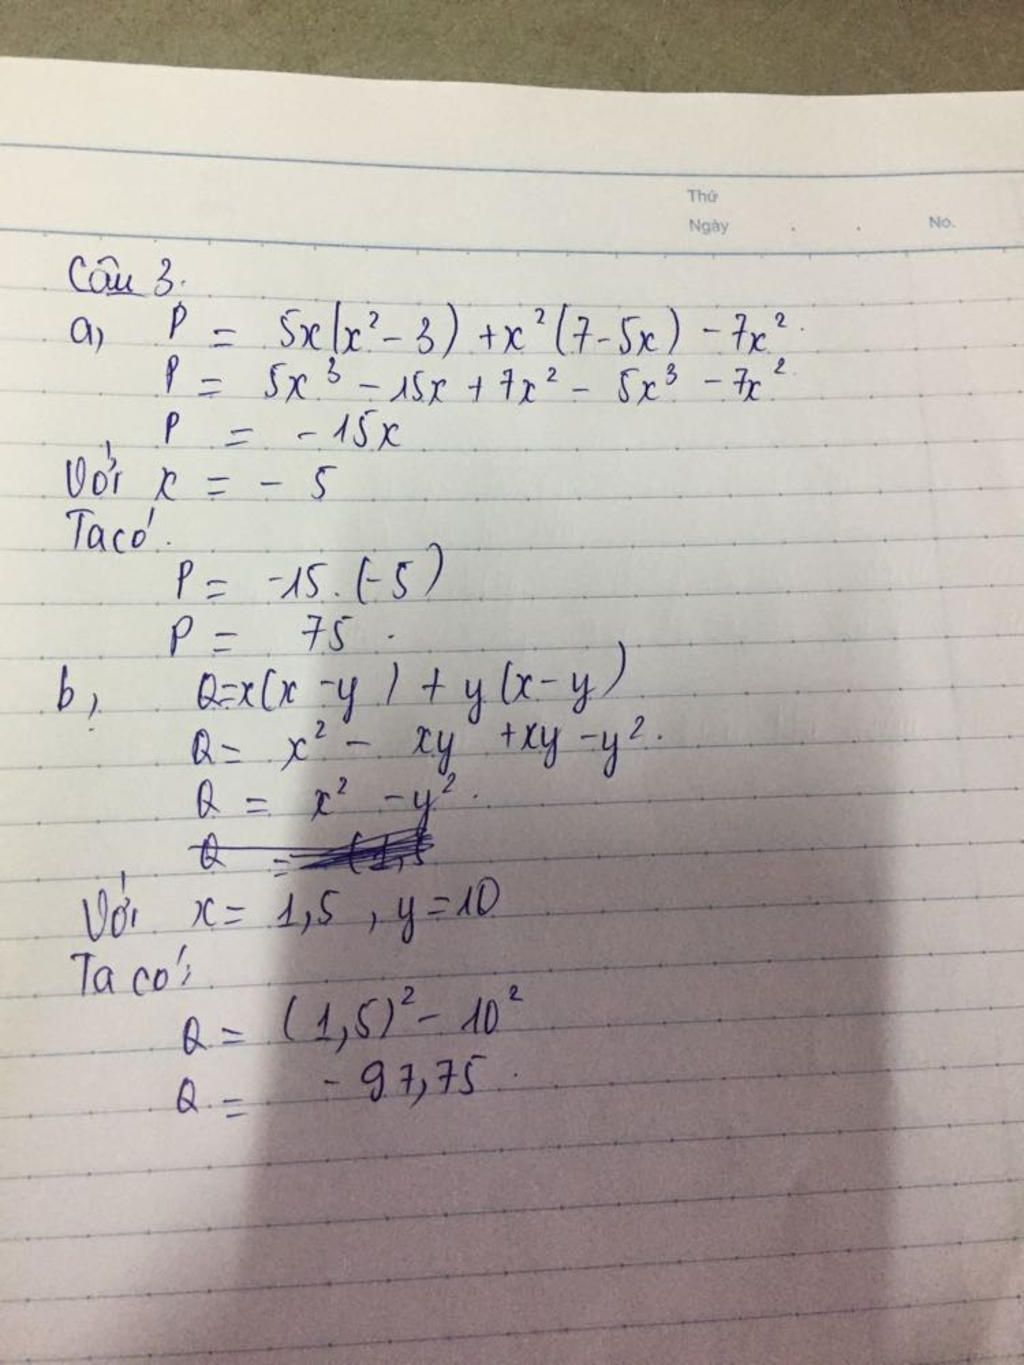 Thứ
Ngày . . No.
Câu 3.
a, P = 5x(x² - 3) + x²(7 - 5x) - 7x².
P = 5x³ - 15x + 7x² - 5x³ - 7x²
P = - 15x
Với x = - 5
Ta có.
P = -15.(-5)
P = 75.
b, Q=x(x - y) + y(x - y)
Q = x² - xy + xy - y².
Q = x² - y².
Với x = 1,5, y = 10
Ta có:
Q = (1,5)² - 10²
Q = - 97,75.